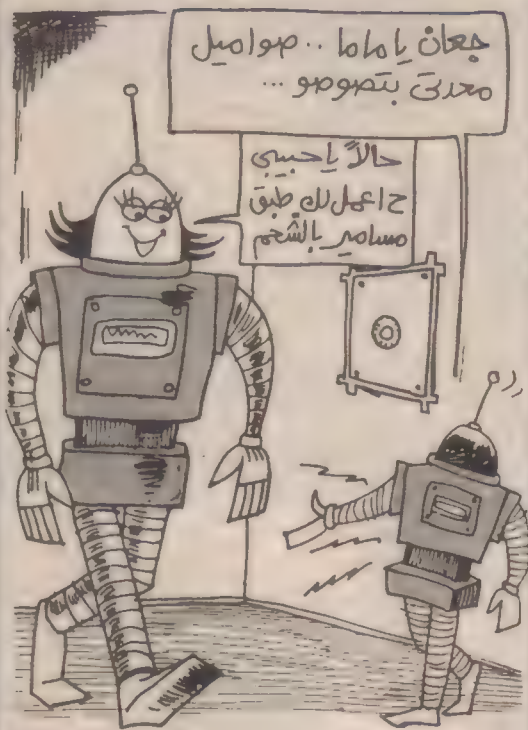 جعان يا ماما .. صواميل
معدتى بتصوصو ...
حالاً يا حبيبى
ح اعمل لك طبق
مسامير بالشحم